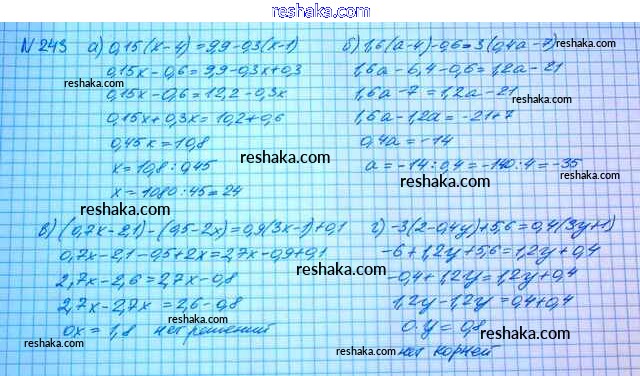 reshaka.com
№ 243 а) 0,15(x-4) = 9,9-0,3(x-1)
0,15x-0,6=9,9-0,3x+0,3
0,15x-0,6=12,2-0,3x
0,15x+0,3x=10,2+0,6
0,45x=10,8
x=10,8:0,45
x=1080:45=24
б) 1,6(a-4)-0,6=3(0,4a-7)
1,6a-6,4-0,6=1,2a-21
1,6a-7=1,2a-21
1,6a-1,2a=-21+7
0,4a=-14
a=-14:0,4=-140:4=-35
в) (0,7x-2,1)-(0,5-2x)=0,9(3x-1)+0,1
0,7x-2,1-0,5+2x=2,7x-0,9+0,1
2,7x-2,6=2,7x-0,8
2,7x-2,7x=2,6-0,8
0x=1,8 нет решений
г) -3(2-0,4y)+5,6=0,4(3y+1)
-6+1,2y+5,6=1,2y+0,4
-0,4+1,2y=1,2y+0,4
1,2y-1,2y=0,4+0,4
0·y=0,8
нет корней
reshaka.com
reshaka.com
reshaka.com
reshaka.com
reshaka.com
reshaka.com
reshaka.com
reshaka.com
reshaka.com
reshaka.com
reshaka.com
reshaka.com
reshaka.com